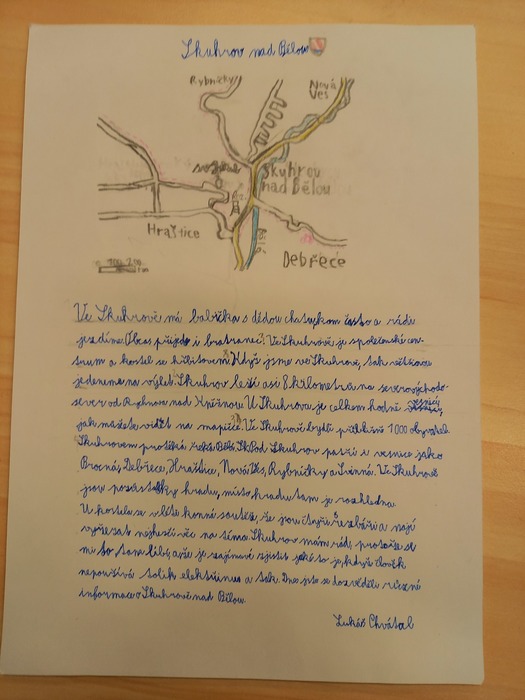 Skuhrov nad Bělou
Rybníčky
Nová
Ves
Skuhrov
nad Bělou
Hraštice
Bělá
Debřece
Ve Skuhrově má babička s dědou chatu, kam často a rádi
jezdíme. Občas přijede i bratranec. Ve Skuhrově je společenské cen-
trum a kostel se hřbitovem. Když jsme ve Skuhrově, tak většinou
jedeme na výlet. Skuhrov leží asi 8 kilometrů na severovýchodo-
sever od Rychnova nad Kněžnou. U Skuhrova je celkem hodně vesnic,
jak můžete vidět na mapičce. Ve Skuhrově bydlí přibližně 1000 obyvatel.
Skuhrovem protéká řeka Bělá. Pod Skuhrov patří i vesnice jako
Brocná, Debřece, Hraštice, Nová Ves, Rybníčky a Svinná. Ve Skuhrově
jsou pozůstatky hradu, místo hradu tam je rozhledna.
U kostela se v létě koná soutěž, že jsou čtyři řezbáři a mají
vyřezat nejhezčí věc na téma. Skuhrov mám rád, protože se
mi to tam líbí, a že je zajímavé zjistit jaké to je, když člověk
nepoužívá tolik elektřinu a tak. Dnes jste se dozvěděli různé
informace o Skuhrově nad Bělou.
Lukáš Chvátal